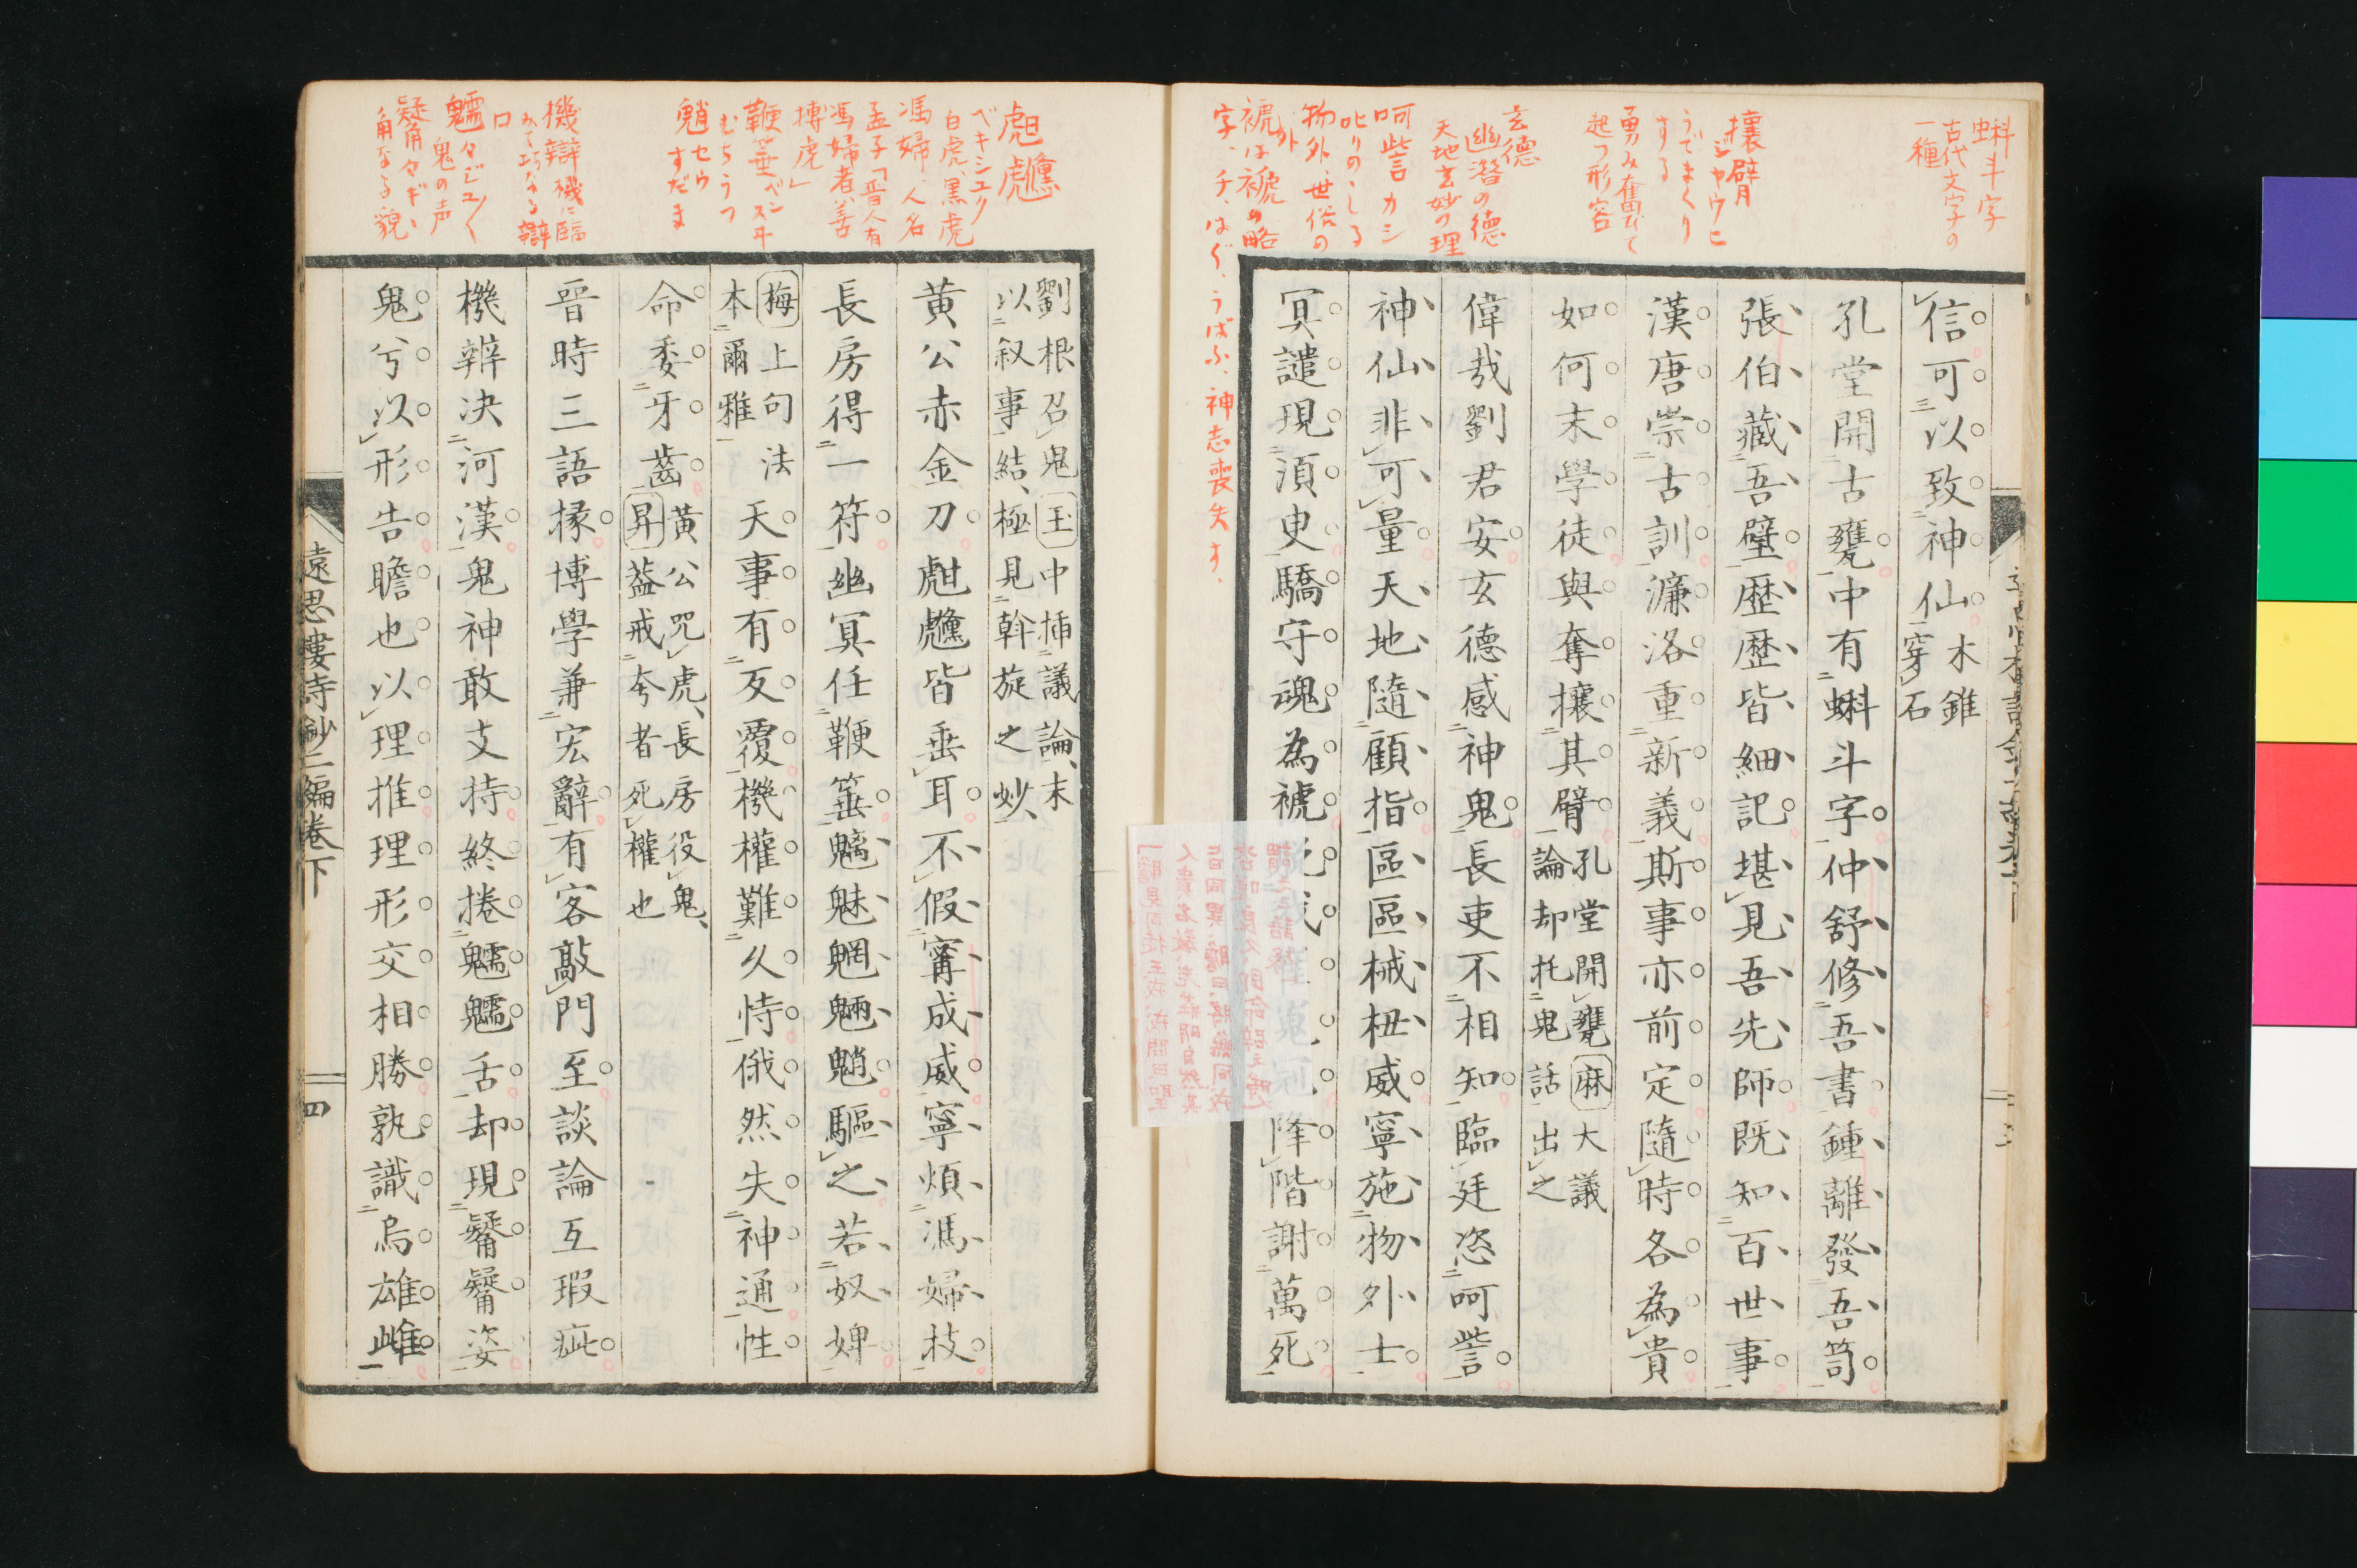 蝌斗字
古代文字の
一種
攘臂
ジヤウヒ
うでまくり
する
勇み奮ひて
起つ形容
玄德
幽潛の德
天地玄妙の理
呵訾 カシ
叱りのゝしる
物外 世俗の
外
褫は褫の略
字、チ、はぐ、うばふ、神志喪失す、
信可以致神仙 木錐
穿石
孔堂開古甕中有蝌斗字仲舒修吾書鍾離發吾笥
張伯藏吾璧歷歷皆細記堪見吾先師既知百世事
漢唐崇古訓濂洛重新義斯事亦前定隨時各為貴
如何末學徒與奪攘其臂 孔堂開甕 麻 大議
論却托鬼話出之
偉哉劉君安玄德感神鬼長吏不相知臨廷恣呵訾
神仙非可量天地隨顧指區區械杻威寧施物外士
冥譴現須臾驕守魂為褫 降階謝萬死
虪
白虎、黑虎
馮婦、人名
孟子「晉人有
馮婦者、善
搏虎」
鞭箠 ベンスヰ
むちうつ
魈 セウ
すだま
機辯 機に臨
みて巧なる辯
口
鬼の声
角なる貌
劉根召鬼 玉 中插議論、末
以叙事結、極見斡旋之妙、
黃公赤金刀 皆垂耳不假寗成威寧煩馮婦技
長房得一符幽冥任鞭箠魑魅魍魎魈驅之若奴婢
梅 上句法
本爾雅
天事有反覆機權難久恃俄然失神通性
命委牙齒 黃公咒虎、長房役鬼、
昇 葢戒夸者死權也
晉時三語掾博學兼宏辭有客敲門至談論互瑕疵
機辨決河漢鬼神敢支持終捲 舌却現 姿
鬼兮以形告瞻也以理推理形交相勝孰識烏雄雌
遠思樓詩鈔二編卷下
四